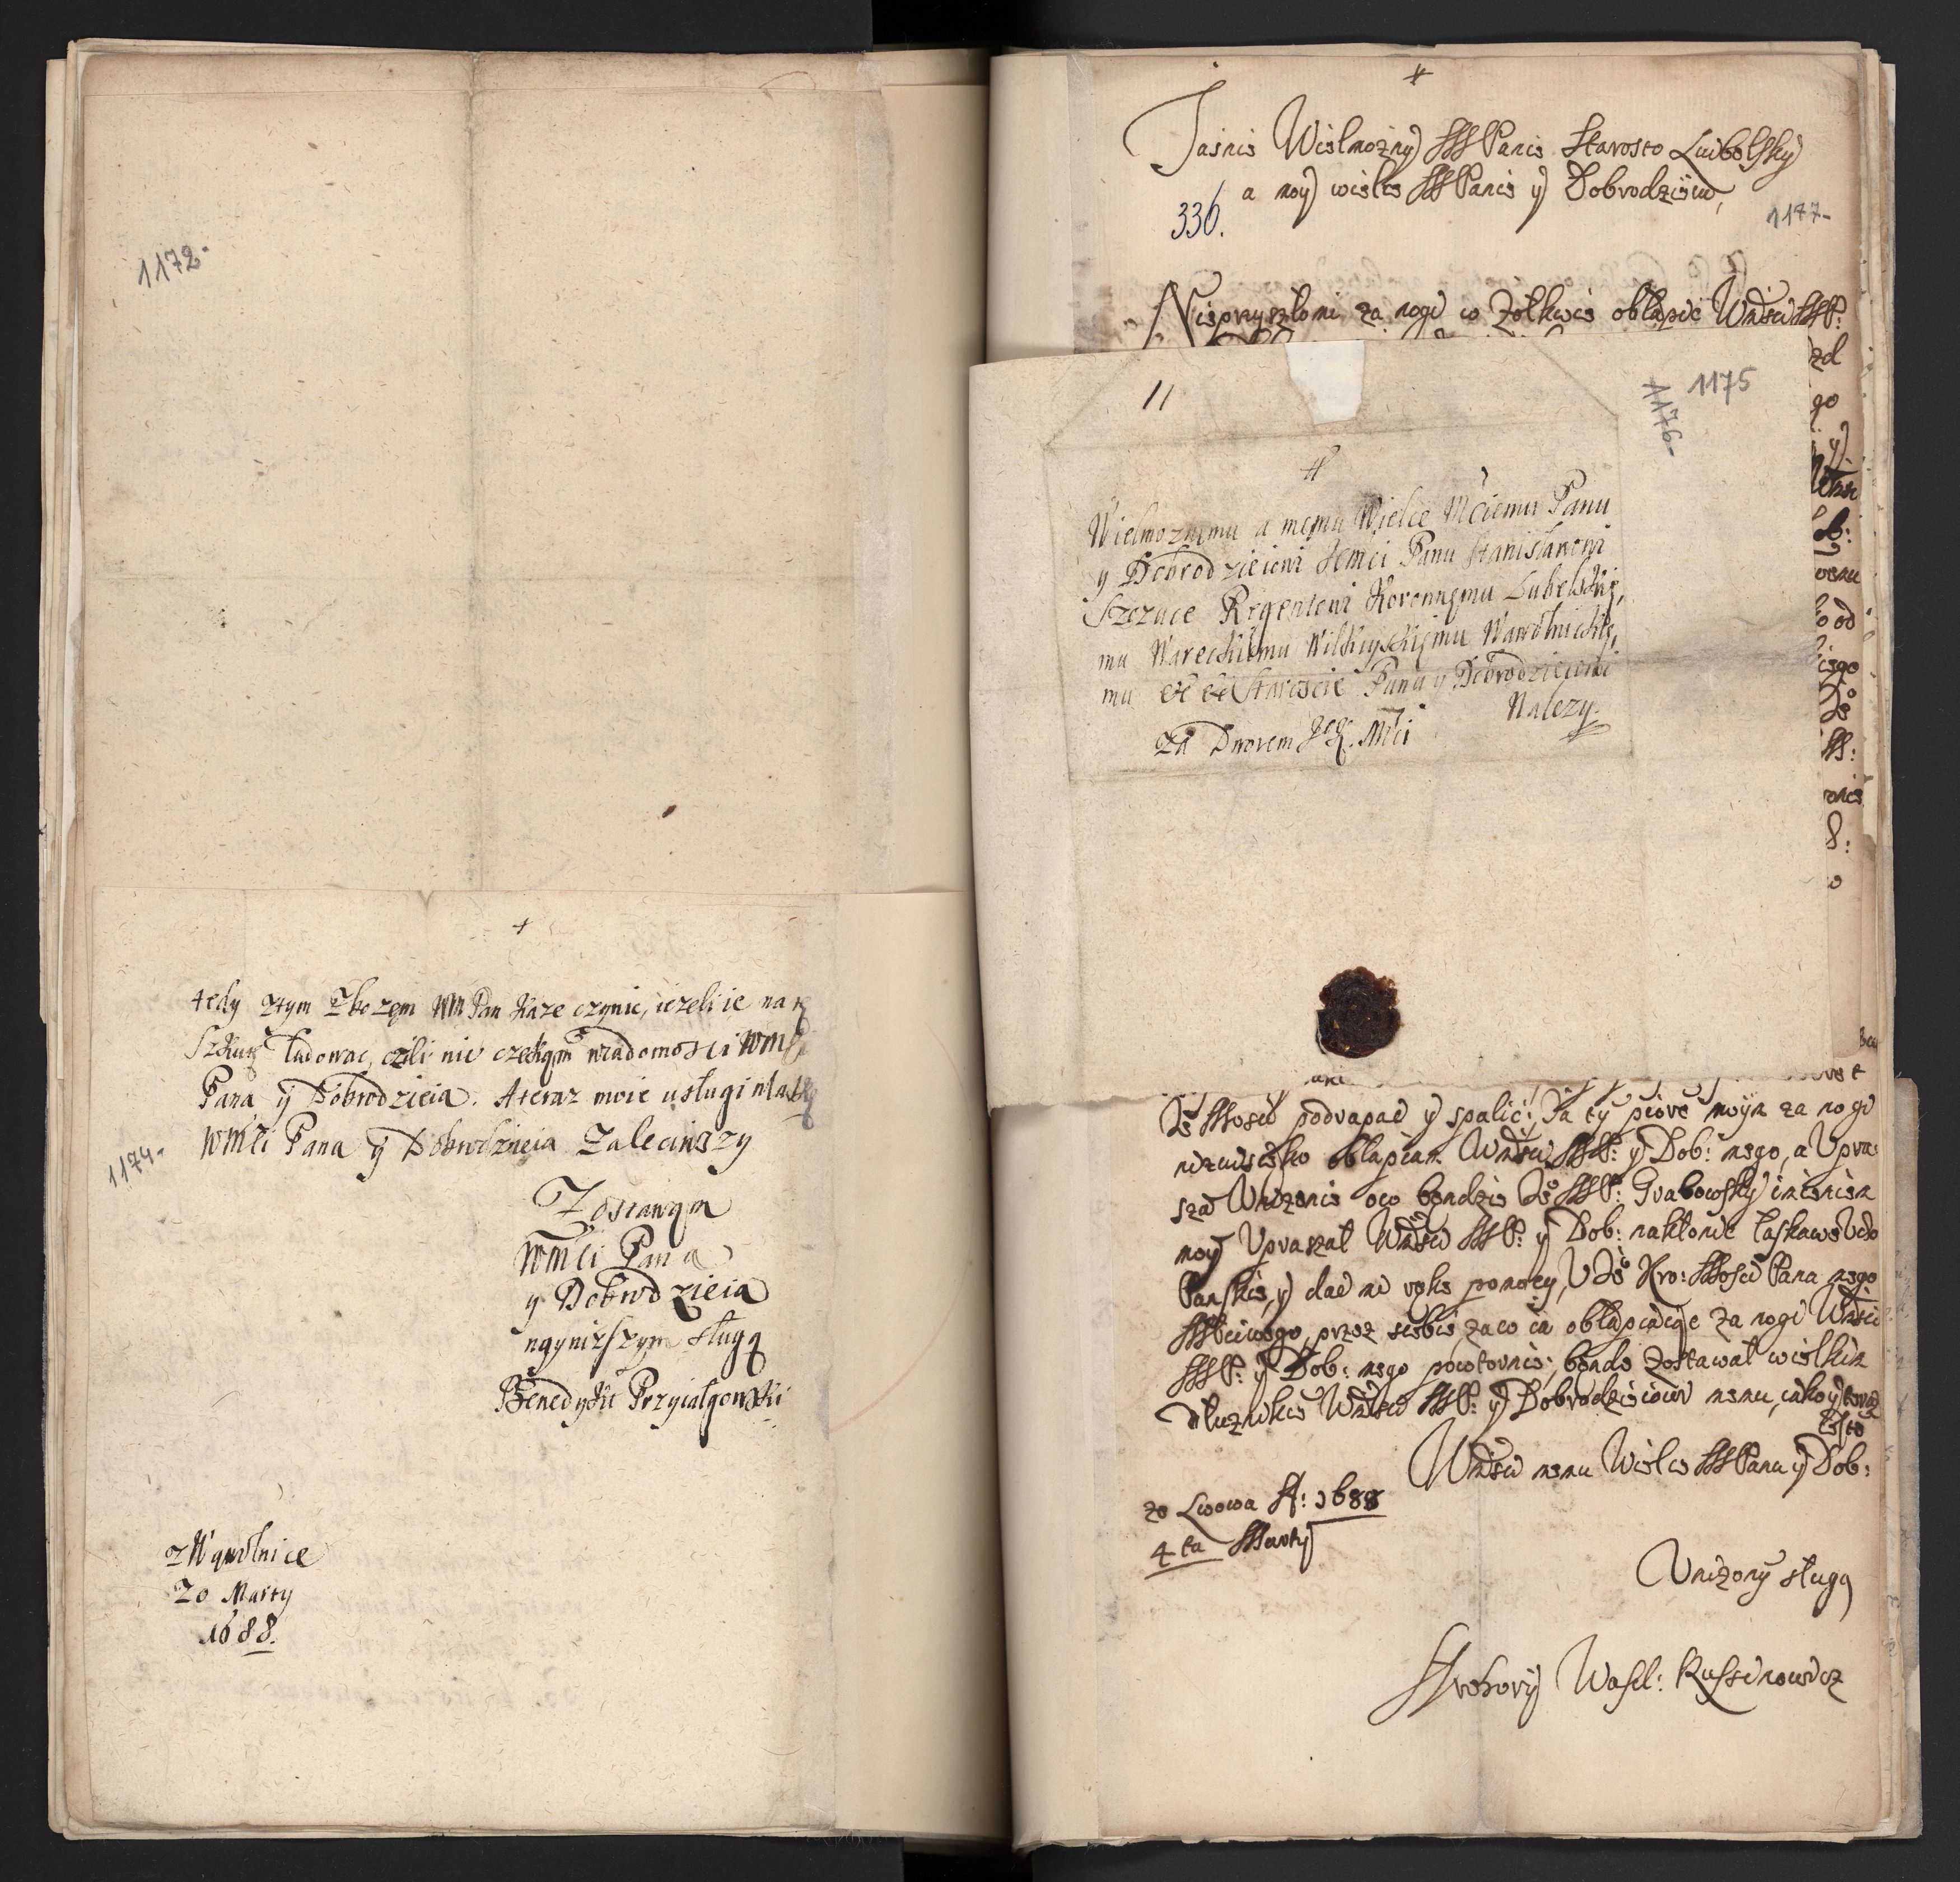 1172-
+
tedy ztym Zbozem WM Pan Kaze czynic, iezeli ie na
Szkuty ładowac, czili nie czekam wiadomosci WMci
Pana ÿ Dobrodzieia. A teraz moie usługi
WMCi Pana ÿ Dobrodzieia Zaleciwszy
1174-
Zostawam
WMCi Pana
y Dobrodzieia
nayniższym sługą
Benedykt Przyiałgowski
z Wąwolnice
20 Marty
1688.
Jasnie Wielmożny MM Panie Starosto Lubelsky
a moy wielce MM Panie y Dobrodzieiu,
336.
1177-
Nieprzyszło mi za nogi w Zołkwie obłapić Wmści MMP:
zd
go
y
b:
go od
iego
8:
11
1175
1176-
Wielmoznemu a memu Wielce Mciemu Panu
y Dobrodzieiowi Jemci Panu Stanisławowi
Szczuce Regentowi Koronnemu Lubelskie,
mu Wareckiemu Wilkiyskiemu Wąwolnickie,
mu et et Staroscie Panu y Dobrodzieiowi
Nalezy.
Za Dworem JegK. Mći
Je Mosci podrapać y spalić; Ja ty piore moÿm za nogi
nizuisieńko obłapiam Wmści MMP: y Dob: mego, a Upra
sza Unizenie oco bendzie Je MMP: Grabowsky imieniem
moÿ Upraszał Wmści MMP: y Dob: nakłonić łaskawe Ucho
Panskie, y dać mi renke pomocy, U Je Kro: Mosci Pana mego
MMciwego, przez siebie zaco ia obłapiaiące za nogi Wmści
MMP: y Dob: mego powtornie, bende zostawał wielkim
dłuznikie Wmści MMP: y Dobrodzieiowi memu, iako y teraz
iesto
Wmści memu Wielce MMPanu y Dob:
ze Lwowa A: 1688
4 ta Marty
Unizony sługa
Hrehorÿ Wasil: Russinowicz